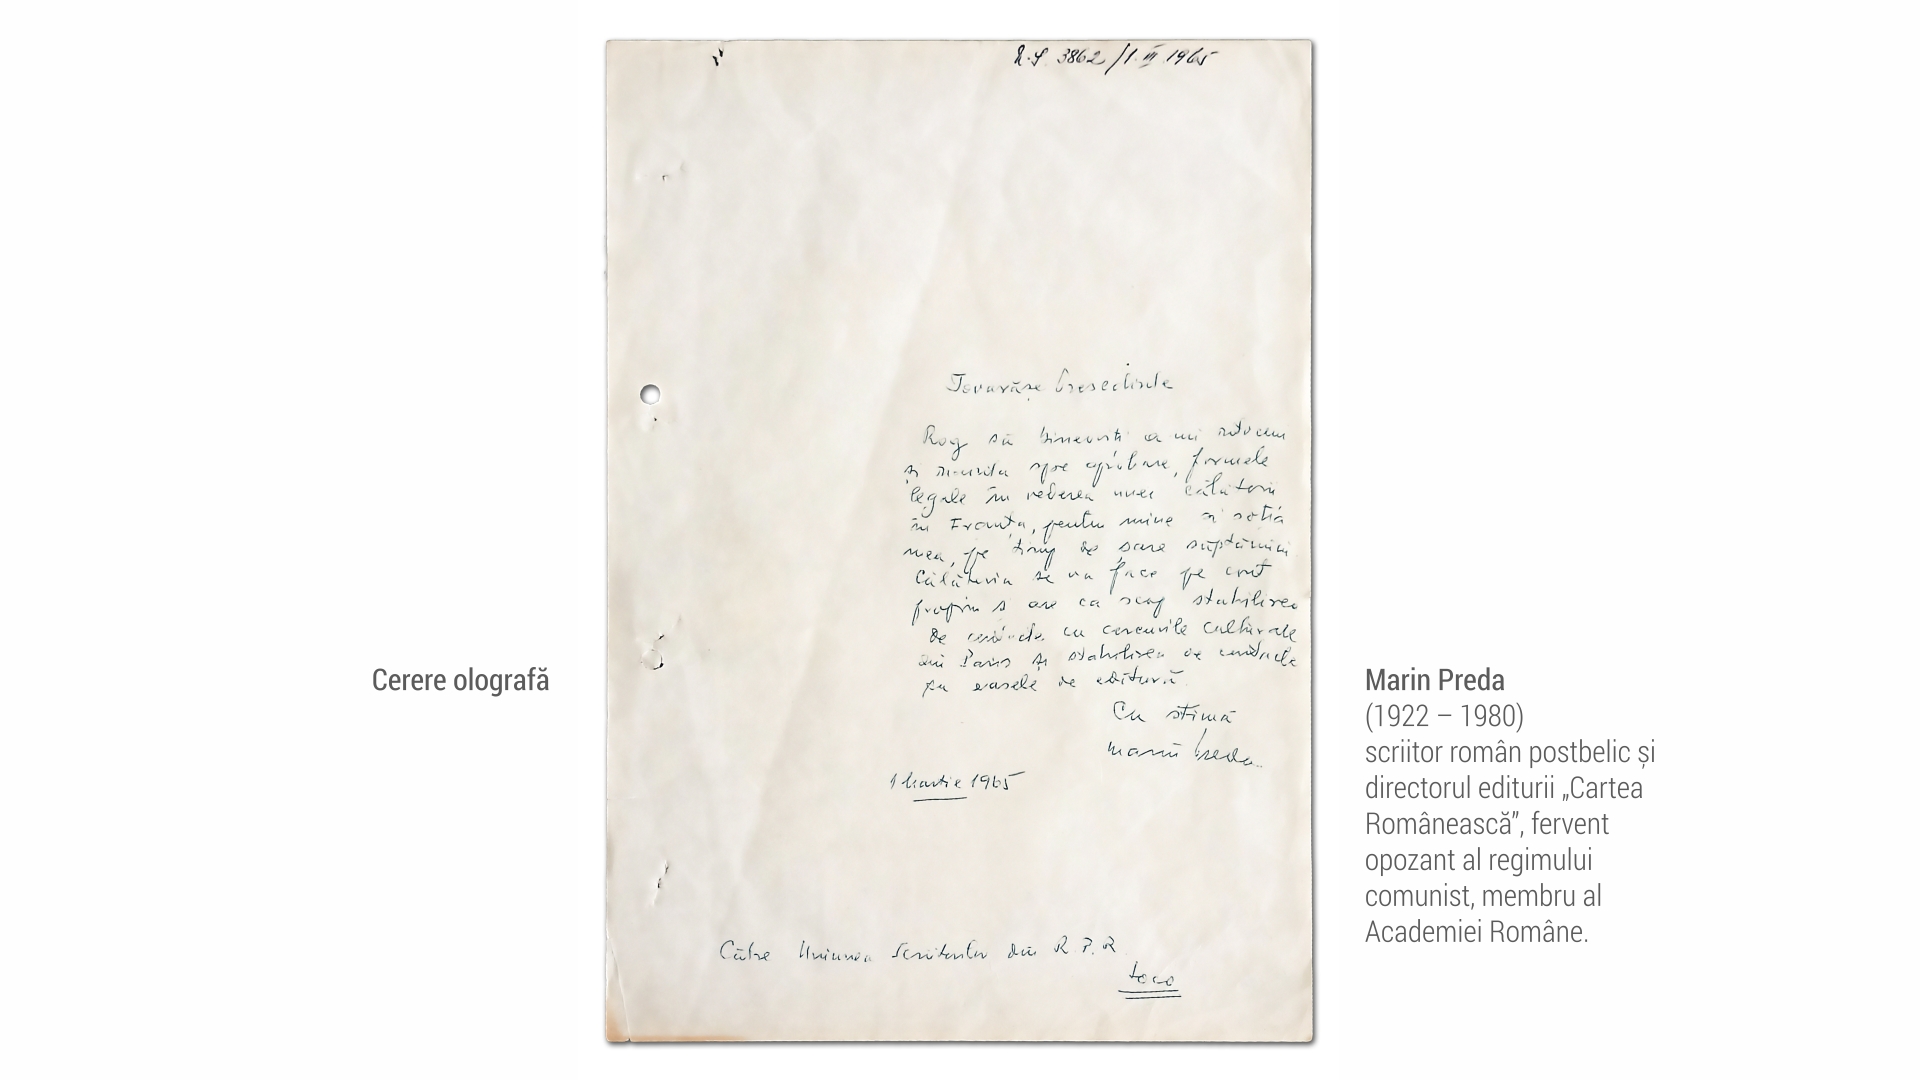 N.S. 3862/1.III.1965
Tovarășe Președinte
Rog să binevoiți a mi întocmi
și spre aprobare, formele
legale în vederea unei călătorii
în Franța, pentru mine și soția
mea, pe timp de șase săptămîni
Călătoria se va face pe cont
propriu și are ca scop stabilirea
de contacte cu cercurile culturale
din Paris și stabilirea de contacte
cu casele de editură.
Cu stimă
Marin Preda
1 Martie 1965
Către Uniunea Scriitorilor din R.P.R.
Loco
Cerere olografă
Marin Preda
(1922 – 1980)
scriitor român postbelic și
directorul editurii „Cartea
Românească”, fervent
opozant al regimului
comunist, membru al
Academiei Române.